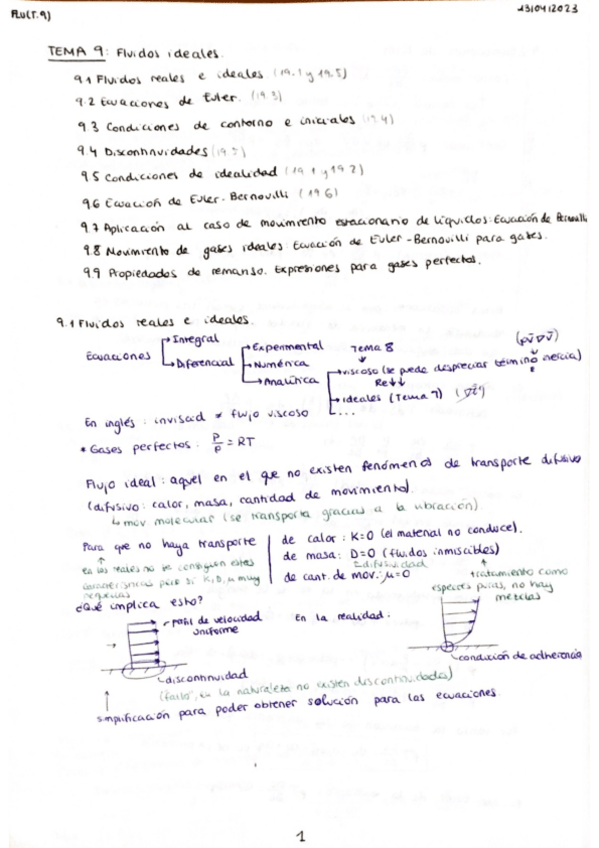 FLU(T.9)
23/04/2023
TEMA 9: Fluidos ideales.
9.1 Fluidos reales e ideales (19.1 y 19.5)
9.2 Ecuaciones de Euler. (19.3)
9.3 Condiciones de contorno e iniciales (19.4)
9.4 Discontinuidades (19.5)
9.5 Condiciones de idealidad (19.1 y 19.2)
9.6 Ecuación de Euler-Bernouilli (19.6)
9.7 Aplicación al caso de movimiento estacionario de líquidos: Ecuación de Bernouilli
9.8 Movimiento de gases ideales: Ecuación de Euler-Bernouilli para gases.
9.9 Propiedades de remanso. Expresiones para gases perfectos.
9.1 Fluidos reales e ideales.
Ecuaciones
Integral
Diferencial
Experimental
Numérica
Analítica
Tema 8
(ρv̄∇v̄)
viscoso (se puede despreciar término inercia)
Re↓↓
ideales (Tema 7)
...
En inglés: inviscid ≠ flujo viscoso
* Gases perfectos: P/ρ = RT
Flujo ideal: aquel en el que no existen fenómenos de transporte difusivo
(difusivo: calor, masa, cantidad de movimiento)
mov molecular (se transporta gracias a la vibración)
Para que no haya transporte
de calor: K=0 (el material no conduce).
de masa: D=0 (fluidos inmiscibles)
difusividad
de cant. de mov.: μ=0
en los reales no se consiguen estas
características pero sí K, D, μ muy
pequeñas
tratamiento como
especies puras, no hay
mezclas
¿Qué implica esto?
perfil de velocidad
uniforme
En la realidad:
discontinuidad
condición de adherencia
(falso, en la naturaleza no existen discontinuidades)
simplificación para poder obtener solución para las ecuaciones
1